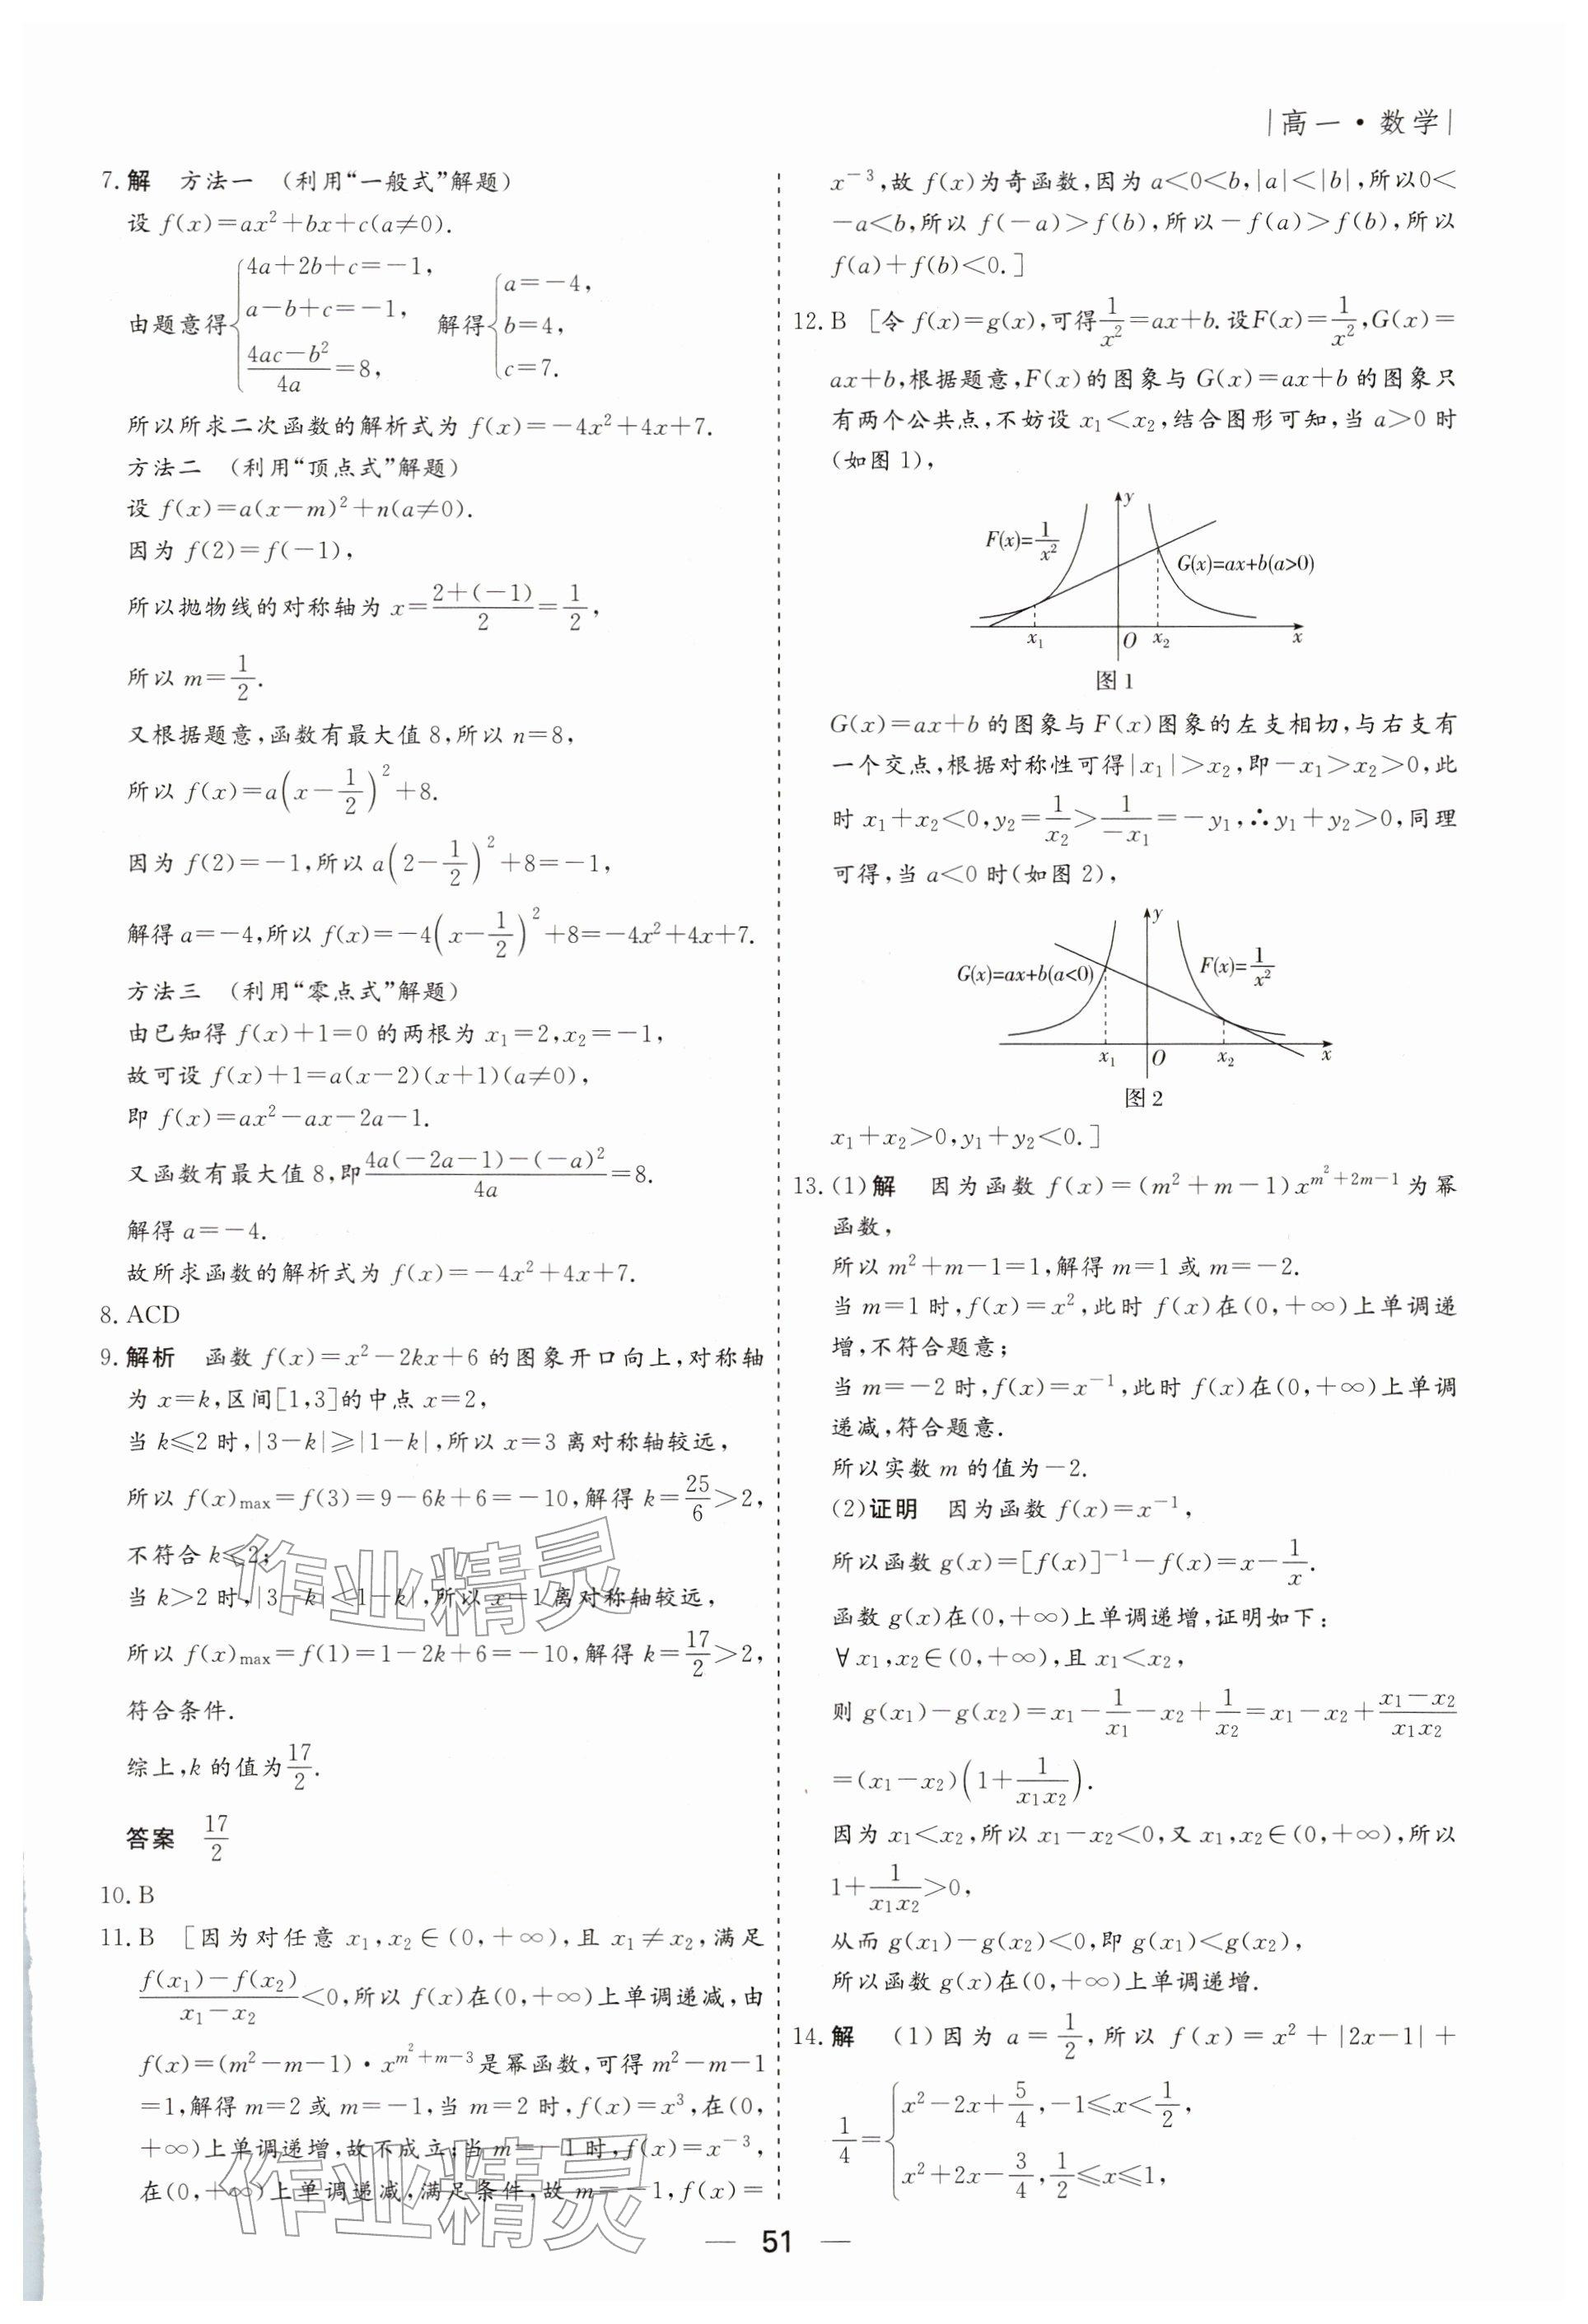 |高一·数学|
7.解 方法一 (利用“一般式”解题)
设 f(x)=ax²+bx+c(a≠0).
由题意得{4a+2b+c=-1, a-b+c=-1, (4ac-b²)/4a=8, 解得{a=-4, b=4, c=7.
所以所求二次函数的解析式为 f(x)=-4x²+4x+7.
方法二 (利用“顶点式”解题)
设 f(x)=a(x-m)²+n(a≠0).
因为 f(2)=f(-1),
所以抛物线的对称轴为 x=(2+(-1))/2=1/2,
所以 m=1/2.
又根据题意,函数有最大值 8,所以 n=8,
所以 f(x)=a(x-1/2)²+8.
因为 f(2)=-1,所以 a(2-1/2)²+8=-1,
解得 a=-4,所以 f(x)=-4(x-1/2)²+8=-4x²+4x+7.
方法三 (利用“零点式”解题)
由已知得 f(x)+1=0 的两根为 x₁=2,x₂=-1,
故可设 f(x)+1=a(x-2)(x+1)(a≠0),
即 f(x)=ax²-ax-2a-1.
又函数有最大值 8,即(4a(-2a-1)-(-a)²)/4a=8.
解得 a=-4.
故所求函数的解析式为 f(x)=-4x²+4x+7.
8.ACD
9.解析 函数 f(x)=x²-2kx+6 的图象开口向上,对称轴
为 x=k,区间[1,3]的中点 x=2,
当 k≤2 时,|3-k|≥|1-k|,所以 x=3 离对称轴较远,
所以 f(x)max=f(3)=9-6k+6=-10,解得 k=25/6>2,
不符合 k≤2;
当 k>2 时,|3-k|<|1-k|,所以 x=1 离对称轴较远,
所以 f(x)max=f(1)=1-2k+6=-10,解得 k=17/2>2,
符合条件.
综上,k 的值为17/2.
答案 17/2
10.B
11.B [因为对任意 x₁,x₂∈(0,+∞),且 x₁≠x₂,满足
(f(x₁)-f(x₂))/(x₁-x₂)<0,所以 f(x)在(0,+∞)上单调递减,由
f(x)=(m²-m-1)·x^(m²+m-3)是幂函数,可得 m²-m-1
=1,解得 m=2 或 m=-1,当 m=2 时,f(x)=x³,在(0,
+∞)上单调递增,故不成立;当 m=-1 时,f(x)=x⁻³,
在(0,+∞)上单调递减,满足条件,故 m=-1,f(x)=
x⁻³,故 f(x)为奇函数,因为 a<0<b,|a|<|b|,所以0<
-a<b,所以 f(-a)>f(b),所以-f(a)>f(b),所以
f(a)+f(b)<0.]
12.B [令 f(x)=g(x),可得1/x²=ax+b.设F(x)=1/x²,G(x)=
ax+b,根据题意,F(x)的图象与 G(x)=ax+b 的图象只
有两个公共点,不妨设 x₁<x₂,结合图形可知,当 a>0 时
(如图 1),
y
F(x)=1/x²
G(x)=ax+b(a>0)
x₁ O x₂ x
图 1
G(x)=ax+b 的图象与 F(x)图象的左支相切,与右支有
一个交点,根据对称性可得|x₁|>x₂,即-x₁>x₂>0,此
时 x₁+x₂<0,y₂=1/x₂>1/(-x₁)=-y₁,∴y₁+y₂>0,同理
可得,当 a<0 时(如图 2),
y
G(x)=ax+b(a<0)
F(x)=1/x²
x₁ O x₂ x
图 2
x₁+x₂>0,y₁+y₂<0.]
13.(1)解 因为函数 f(x)=(m²+m-1)x^(m²+2m-1)为幂
函数,
所以 m²+m-1=1,解得 m=1 或 m=-2.
当 m=1 时,f(x)=x²,此时 f(x)在(0,+∞)上单调递
增,不符合题意;
当 m=-2 时,f(x)=x⁻¹,此时 f(x)在(0,+∞)上单调
递减,符合题意.
所以实数 m 的值为-2.
(2)证明 因为函数 f(x)=x⁻¹,
所以函数 g(x)=[f(x)]⁻¹-f(x)=x-1/x.
函数 g(x)在(0,+∞)上单调递增,证明如下:
∀x₁,x₂∈(0,+∞),且 x₁<x₂,
则 g(x₁)-g(x₂)=x₁-1/x₁-x₂+1/x₂=x₁-x₂+(x₁-x₂)/(x₁x₂)
=(x₁-x₂)(1+1/(x₁x₂)).
因为 x₁<x₂,所以 x₁-x₂<0,又 x₁,x₂∈(0,+∞),所以
1+1/(x₁x₂)>0,
从而 g(x₁)-g(x₂)<0,即 g(x₁)<g(x₂),
所以函数 g(x)在(0,+∞)上单调递增.
14.解 (1)因为 a=1/2,所以 f(x)=x²+|2x-1|+
1/4={x²-2x+5/4,-1≤x<1/2, x²+2x-3/4,1/2≤x≤1,
作业精灵
作业精灵
— 51 —